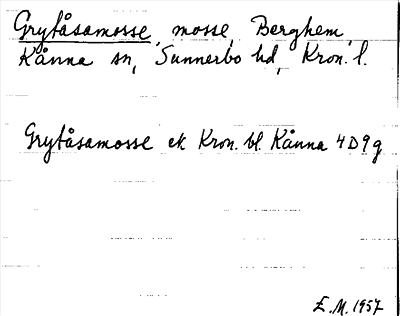 Grytåsamosse, mosse, Berghem,
Kånna sn, Sunnerbo hd, Kron. l.
Grytåsamosse ek Kron. bl. Kånna 4D9g
E.M. 1957